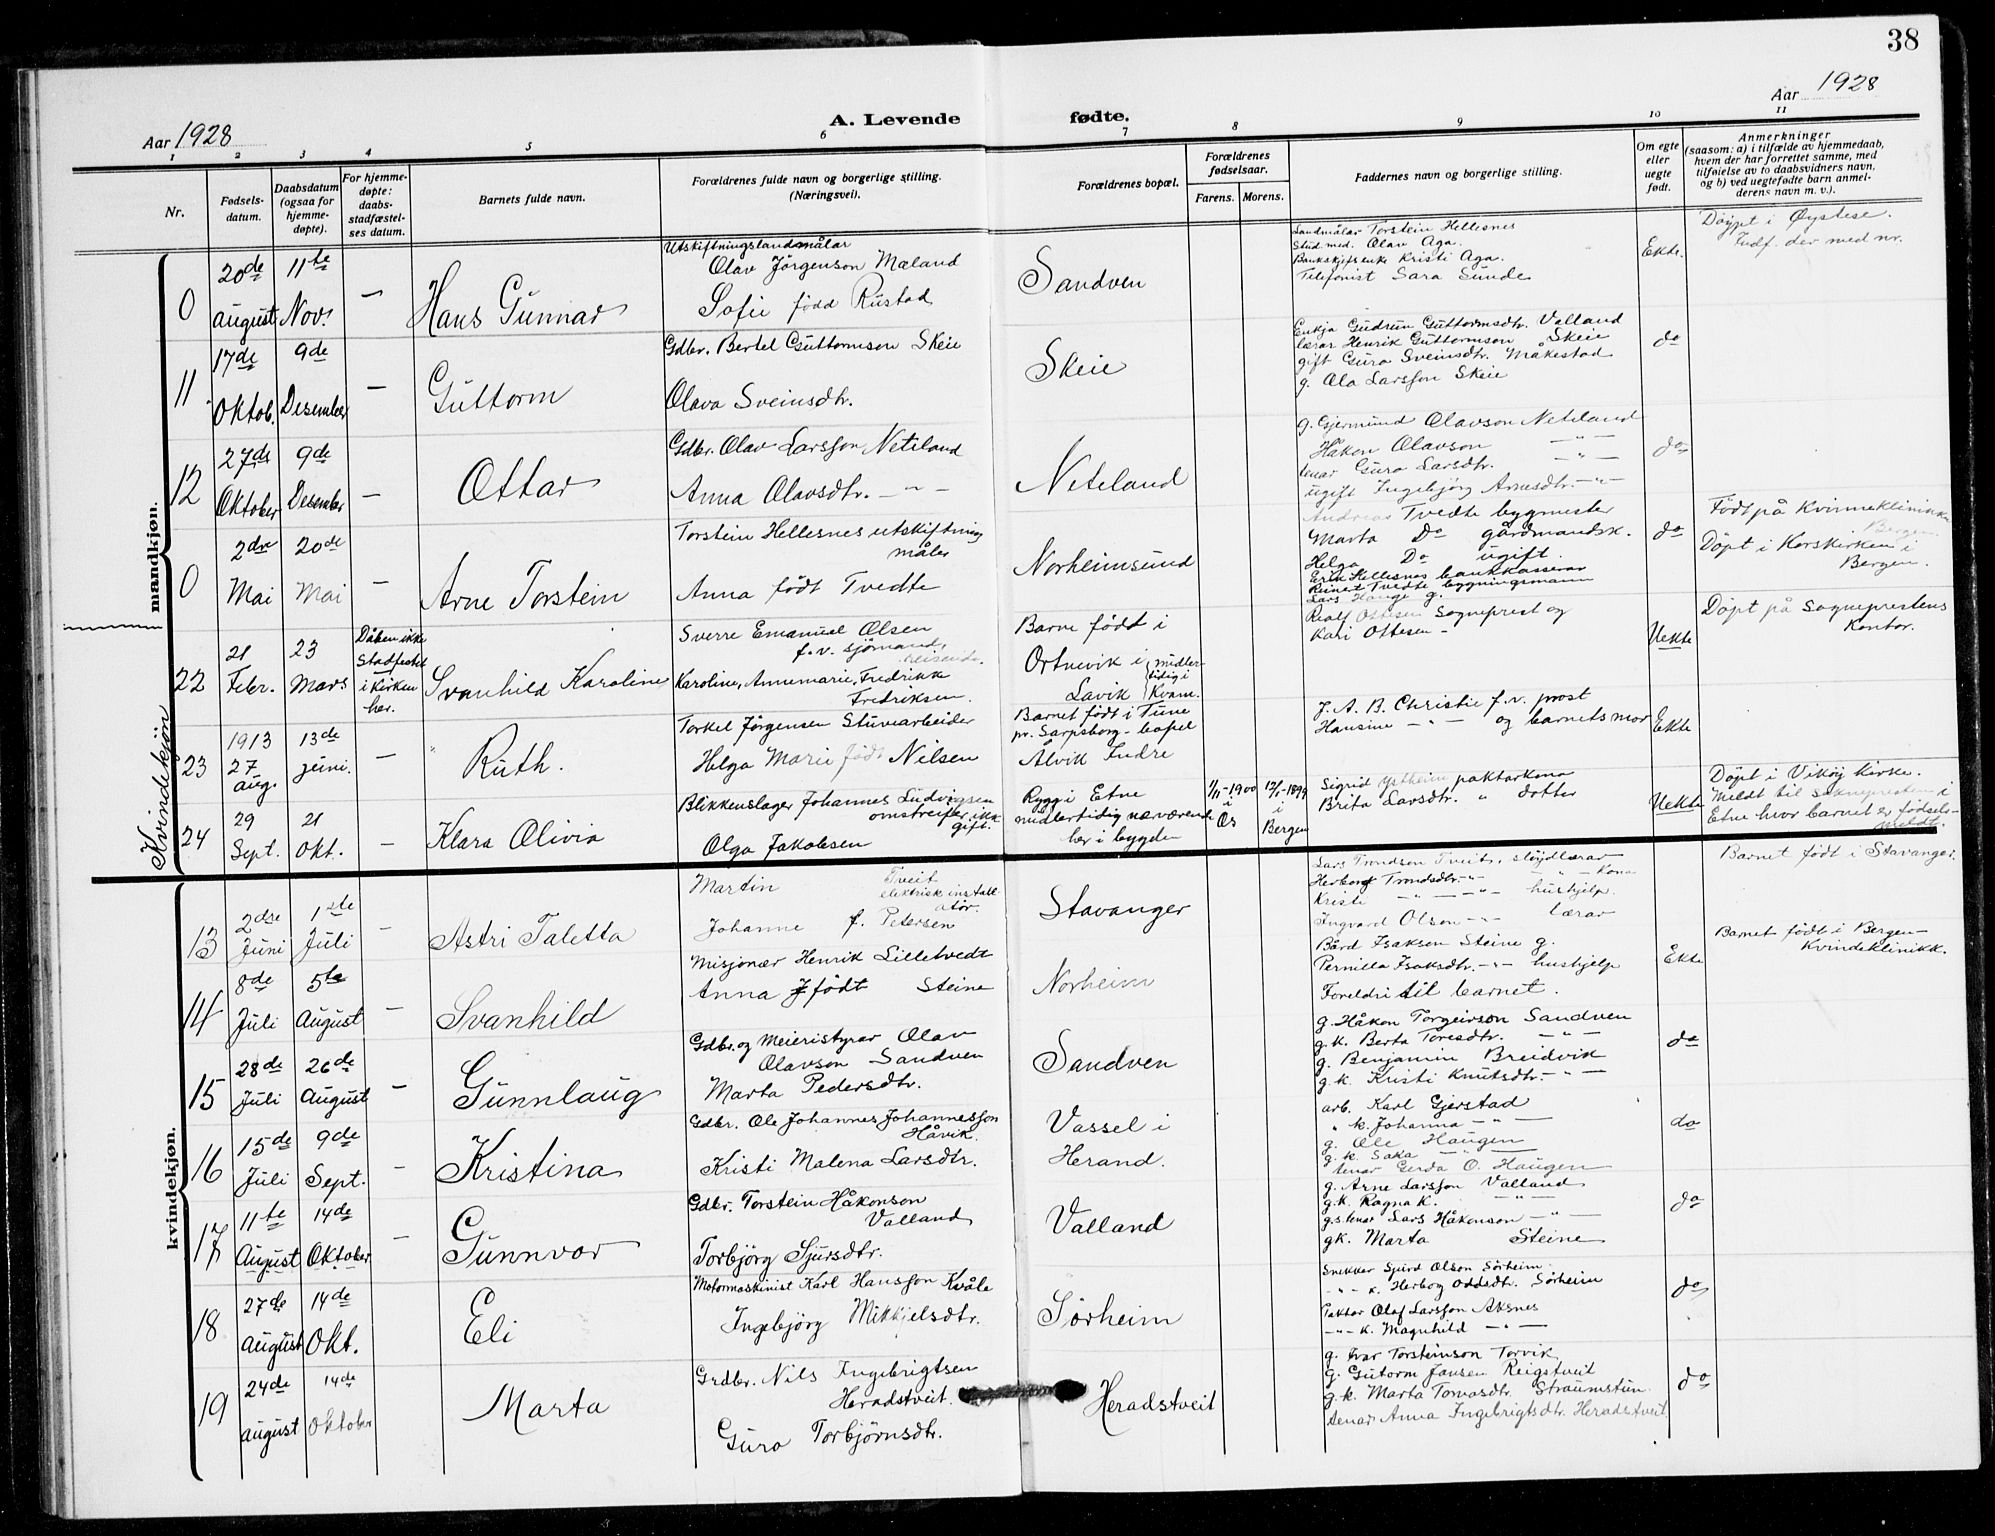 38
Aar 1928
A. Levende fødte.
Aar 1928
1 2 3 4 5 6 7 8 9 10 11
Nr.
Fødsels-
datum.
Daabsdatum
(ogsaa for
hjemme-
døpte).
For hjemme-
døpte:
daabs-
stadfæstel-
ses datum.
Barnets fulde navn.
Forældrenes fulde navn og borgerlige stilling.
(Næringsvei).
Forældrenes bopæl.
Forældrenes
fødselsaar.
Farens. Morens.
Faddernes navn og borgerlige stilling.
Om egte
eller
uegte
født.
Anmerkninger
(saasom: a) i tilfælde av hjemmedaab,
hvem der har forrettet samme, med
tilføielse av to daabsvidners navn,
og b) ved uegtefødte barn anmel-
derens navn m. v.).
mandkjøn.
0
20de
august
11te
Nov.
—
Hans Gunnar
Utskiftningslandmålar
Olav Jörgenson Mæland
Sofie född Rustad
Sandven
Landmålar Torstein Hellesnes
Stud. med. Olav Aga.
Bankskjefsenke Kristi Aga.
Telefonist Sara Sunde
Ekte.
Döypt i Øystese.
Indf. der med nr.
11
17de
Oktob.
9de
Desember
—
Guttorm
Gdbr. Bertel Guttormson Skeie
Olava Sveinsdtr.
Skeie
Enkja Gudrun Guttormsdtr. Valland
lærar Henrik Guttormson Skeie
gift Guro Sveinsdtr. Måkestad
g. Ola Larsson Skeie
do
12
27de
Oktober
9de
Desember
—
Ottar
Gdbr. Olav Larsson Neteland
Anna Olavsdtr. — " —
Neteland
g. Gjermund Olavson Neteland
Håkon Olavson — " —
tenar Guro Larsdtr. — " —
ugift Ingebjörg Arnesdtr. — " —
do
0
2dre
Mai
20de
Mai
—
Arne Torstein
Torstein Hellesnes utskiftning
måler
Anna født Tvedte
Norheimsund
Andreas Tvedte bygmester
Marta Do gårdmandsk.
Helga Do ugift.
Erik Hellesnes bankkasserar
Reinert Tvedte bygningsmann
Lars Hauge g.
do
Født på Kvinneklinikken
Bergen
Döpt i Korskirken i
Bergen.
Kvindekjön
22
21
Febr.
23
Mars
Dåben ikke
Stadfestet
i Kirken
her.
Svanhild Karoline
Sverre Emanuel Olsen
f. v. sjömand,
reisende.
Karoline, Annemarie, Fredrikke
Fredriksen
Barne født i
Ortnevik i
Lavik
midler-
tidig i
Kvam.
Rolf Ottesen Sogneprest og
Kari Ottesen —
Uekte
Döpt på Sogneprestens
Kontor.
23
1913
27
aug.
13de
juni.
—
Ruth.
Torkel Jörgensen Stuvearbeider
Helga Marie født Nilsen
Barnet födt i Tune
pr. Sarpsborg — bopel
Ålvik Indre
J. A. B. Christie f. v. prost
Hansine — " — og barnets mor
Ekte
24
29
Sept.
21
Okt.
—
Klara Olivia
Blikkenslager Johannes Ludvigsen
omstreifer, ikke
gift.
Olga Jakobsen
Rygg i Etne
midlertidig nærværende
her i bygden
1/11-1900
i
Os
12/1-1899
i
Bergen
Sigrid Ystheim paktarkona
Brita Larsdtr. " dotter
Uekte
Döpt i Vikøy Kirke.
Meldt til Soknepresten i
Etne hvor barnet er fødsels-
meldt.
kvindekjøn.
13
2dre
Juni
1ste
Juli
—
Astri Taletta
Martin Tveit
elektrisk install
atör.
Johanne f. Petersen
Stavanger
Lars Trondsen Tveit, sløydlærar
Herborg Trondsdtr. — " — Kona
Kristi — " — husHjelp.
Ingvard Olson — " — lærar
Barnet födt i Stavanger.
14
8de
Juli
5te
August
—
Svanhild
Misjonær Henrik Lilletvedt
Anna født Steine
Norheim
Bård Isakson Steine g.
Pernilla Isaksdtr. — " — hushjelp
Foreldri til barnet.
Ekte
Barnet födt i Bergen —
Kvindeklinikk.
15
28de
Juli
26de
August
—
Gunnlaug
Gdbr. og Meieristyrar Olav
Olavson Sandven
Marta Pedersdtr.
Sandven
g. Håkon Torgeirson Sandven
g. k. Berta Toresdtr. — " —
g. Benjamin Breidvik
g. k. Kristi Knutsdtr. — " —
do
16
15de
Juli
9de
Sept.
—
Kristina
Gdbr. Ole Johannes Johannesson
Håvik.
Kristi Malena Larsdtr.
Vassel i
Herand.
arb. Karl Gjerstad
" k. Johanna — " —
g. Ole Haugen
g. k. Saka — " —
tenar Gerda O. Haugen
do
17
11te
August
14de
Oktober
—
Gunnvor
Gdbr. Torstein Håkonson
Valland
Torbjörg Sjursdtr.
Valland
g. Arne Larsson Valland
g. k. Ragna K. — " —
g.s. tenar Lars Håkonson — " —
gk. Marta Steine
do
18
27de
august
14de
Okt.
Eli
Motormaskinist Karl Hansson Kvåle
Ingebjörg Mikkjelsdtr.
Sörheim
Snekker Sjurd Olson Sörheim
— " — k. Herborg Oddsdtr. Sörheim
Paktar Olaf Larsson Aksnes
— " — k. Magnhild — " —
do
19
24de
august
14de
Oktober
Marta
Grdbr. Nils Ingebrigtsen
Heradstveit.
Guro Torbjörnsdtr.
Heradstveit
g. Ivar Torsteinson Torvik
g. Gutorm Jansen Reigstveit
g. k. Marta Tomasdtr. Straumstun
tenar Anna Ingebrigtsdtr. Heradstveit
do